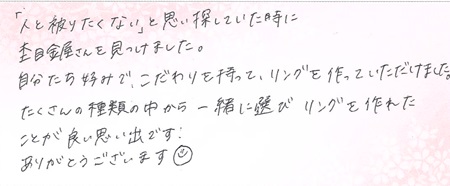 「人と被りたくない」と思い探していた時に
杢目金屋さんを見つけました。
自分たち好みで、こだわりを持って、リングを作っていただけました。
たくさんの種類の中から一緒に選びリングを作れた
ことが良い思い出です!
ありがとうございます